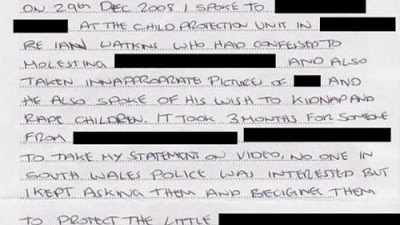 ON 29th DEC 2008 I SPOKE TO
AT THE CHILD PROTECTION UNIT IN
RE IAN WATKINS WHO HAD CONFESSED TO
MOLESTING AND ALSO
TAKEN INNAPPROPRIATE PICTURE OF AND
HE ALSO SPOKE OF HIS WISH TO KIDNAP AND
RAPE CHILDREN. IT TOOK 3 MONTHS FOR SOMEONE
FROM
TO TAKE MY STATEMENT ON VIDEO, NO ONE IN
SOUTH WALES POLICE WAS INTERESTED BUT
I KEPT ASKING THEM AND BEGGING THEM
TO PROTECT THE LITTLE